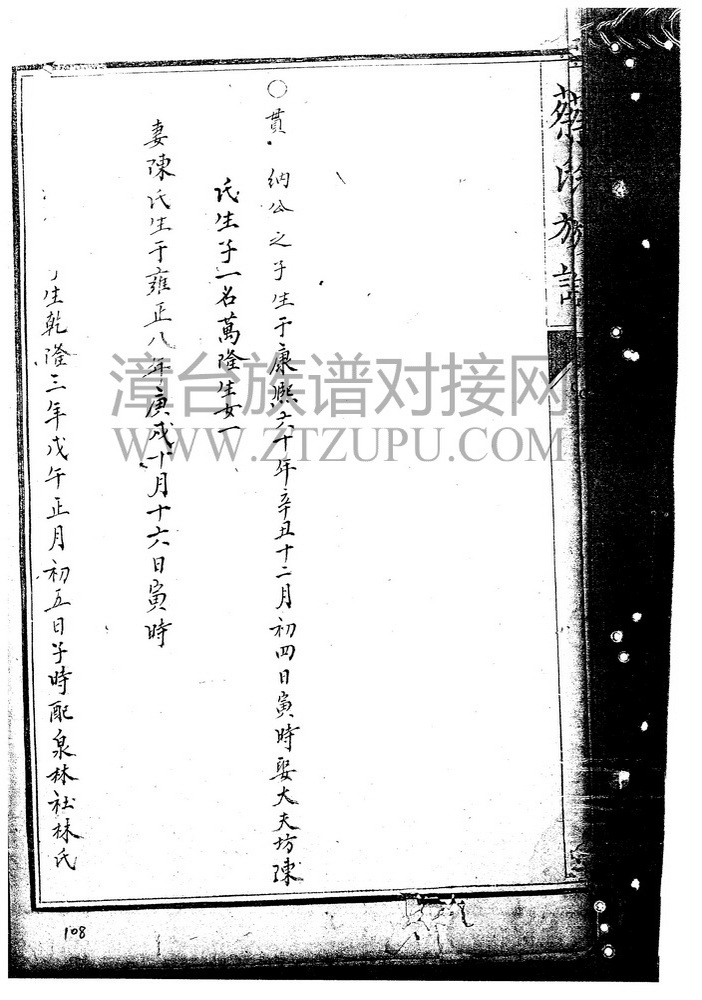 蔡氏族譜
○貫 納公之子生于康熙六十年辛丑十二月初四日寅時娶大夫坊陳
氏生子一名萬隆生女一
妻陳氏生于雍正八年庚戌十月十六日寅時
生乾隆三年戊午正月初五日子時配泉林社林氏
漳台族谱对接网
WWW.ZTZUPU.COM
108